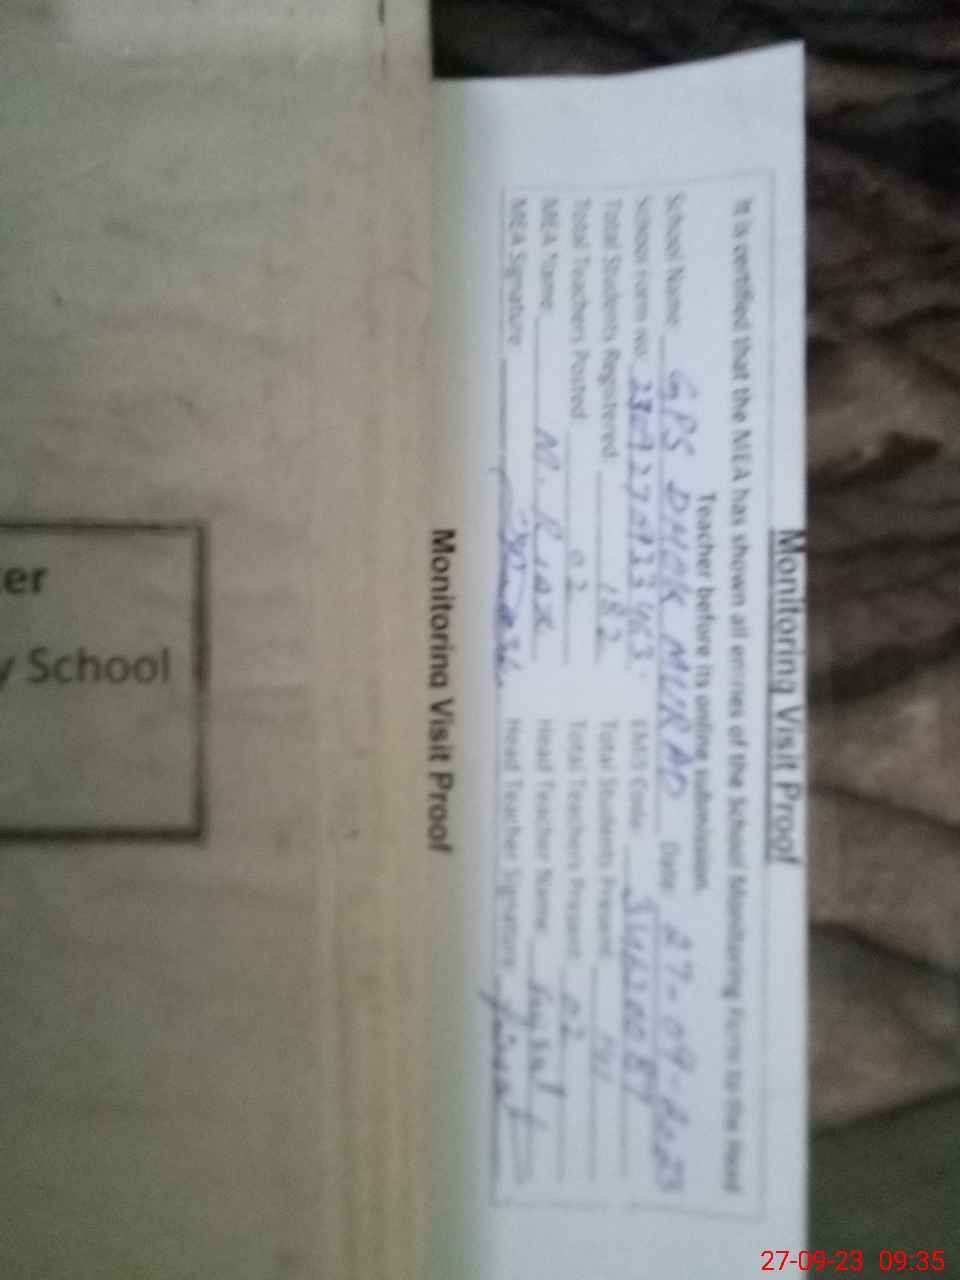 Monitoring Visit Proof
It is certified that the MEA has shown all entries of the School Monitoring Form to the Head
Teacher before its online submission.
School Name GPS DHOK MURAD Date 27-09-2023
School Form No. 230927A33463 EMIS Code
Total Students Registered: 182 Total Students Present 141
Total Teachers Posted: 02 Total Teachers Present 02
MEA Name M. Riaz Head Teacher Name
MEA Signature Head Teacher Signature
Monitoring Visit Proof
er
y School
27-09-23 09:35